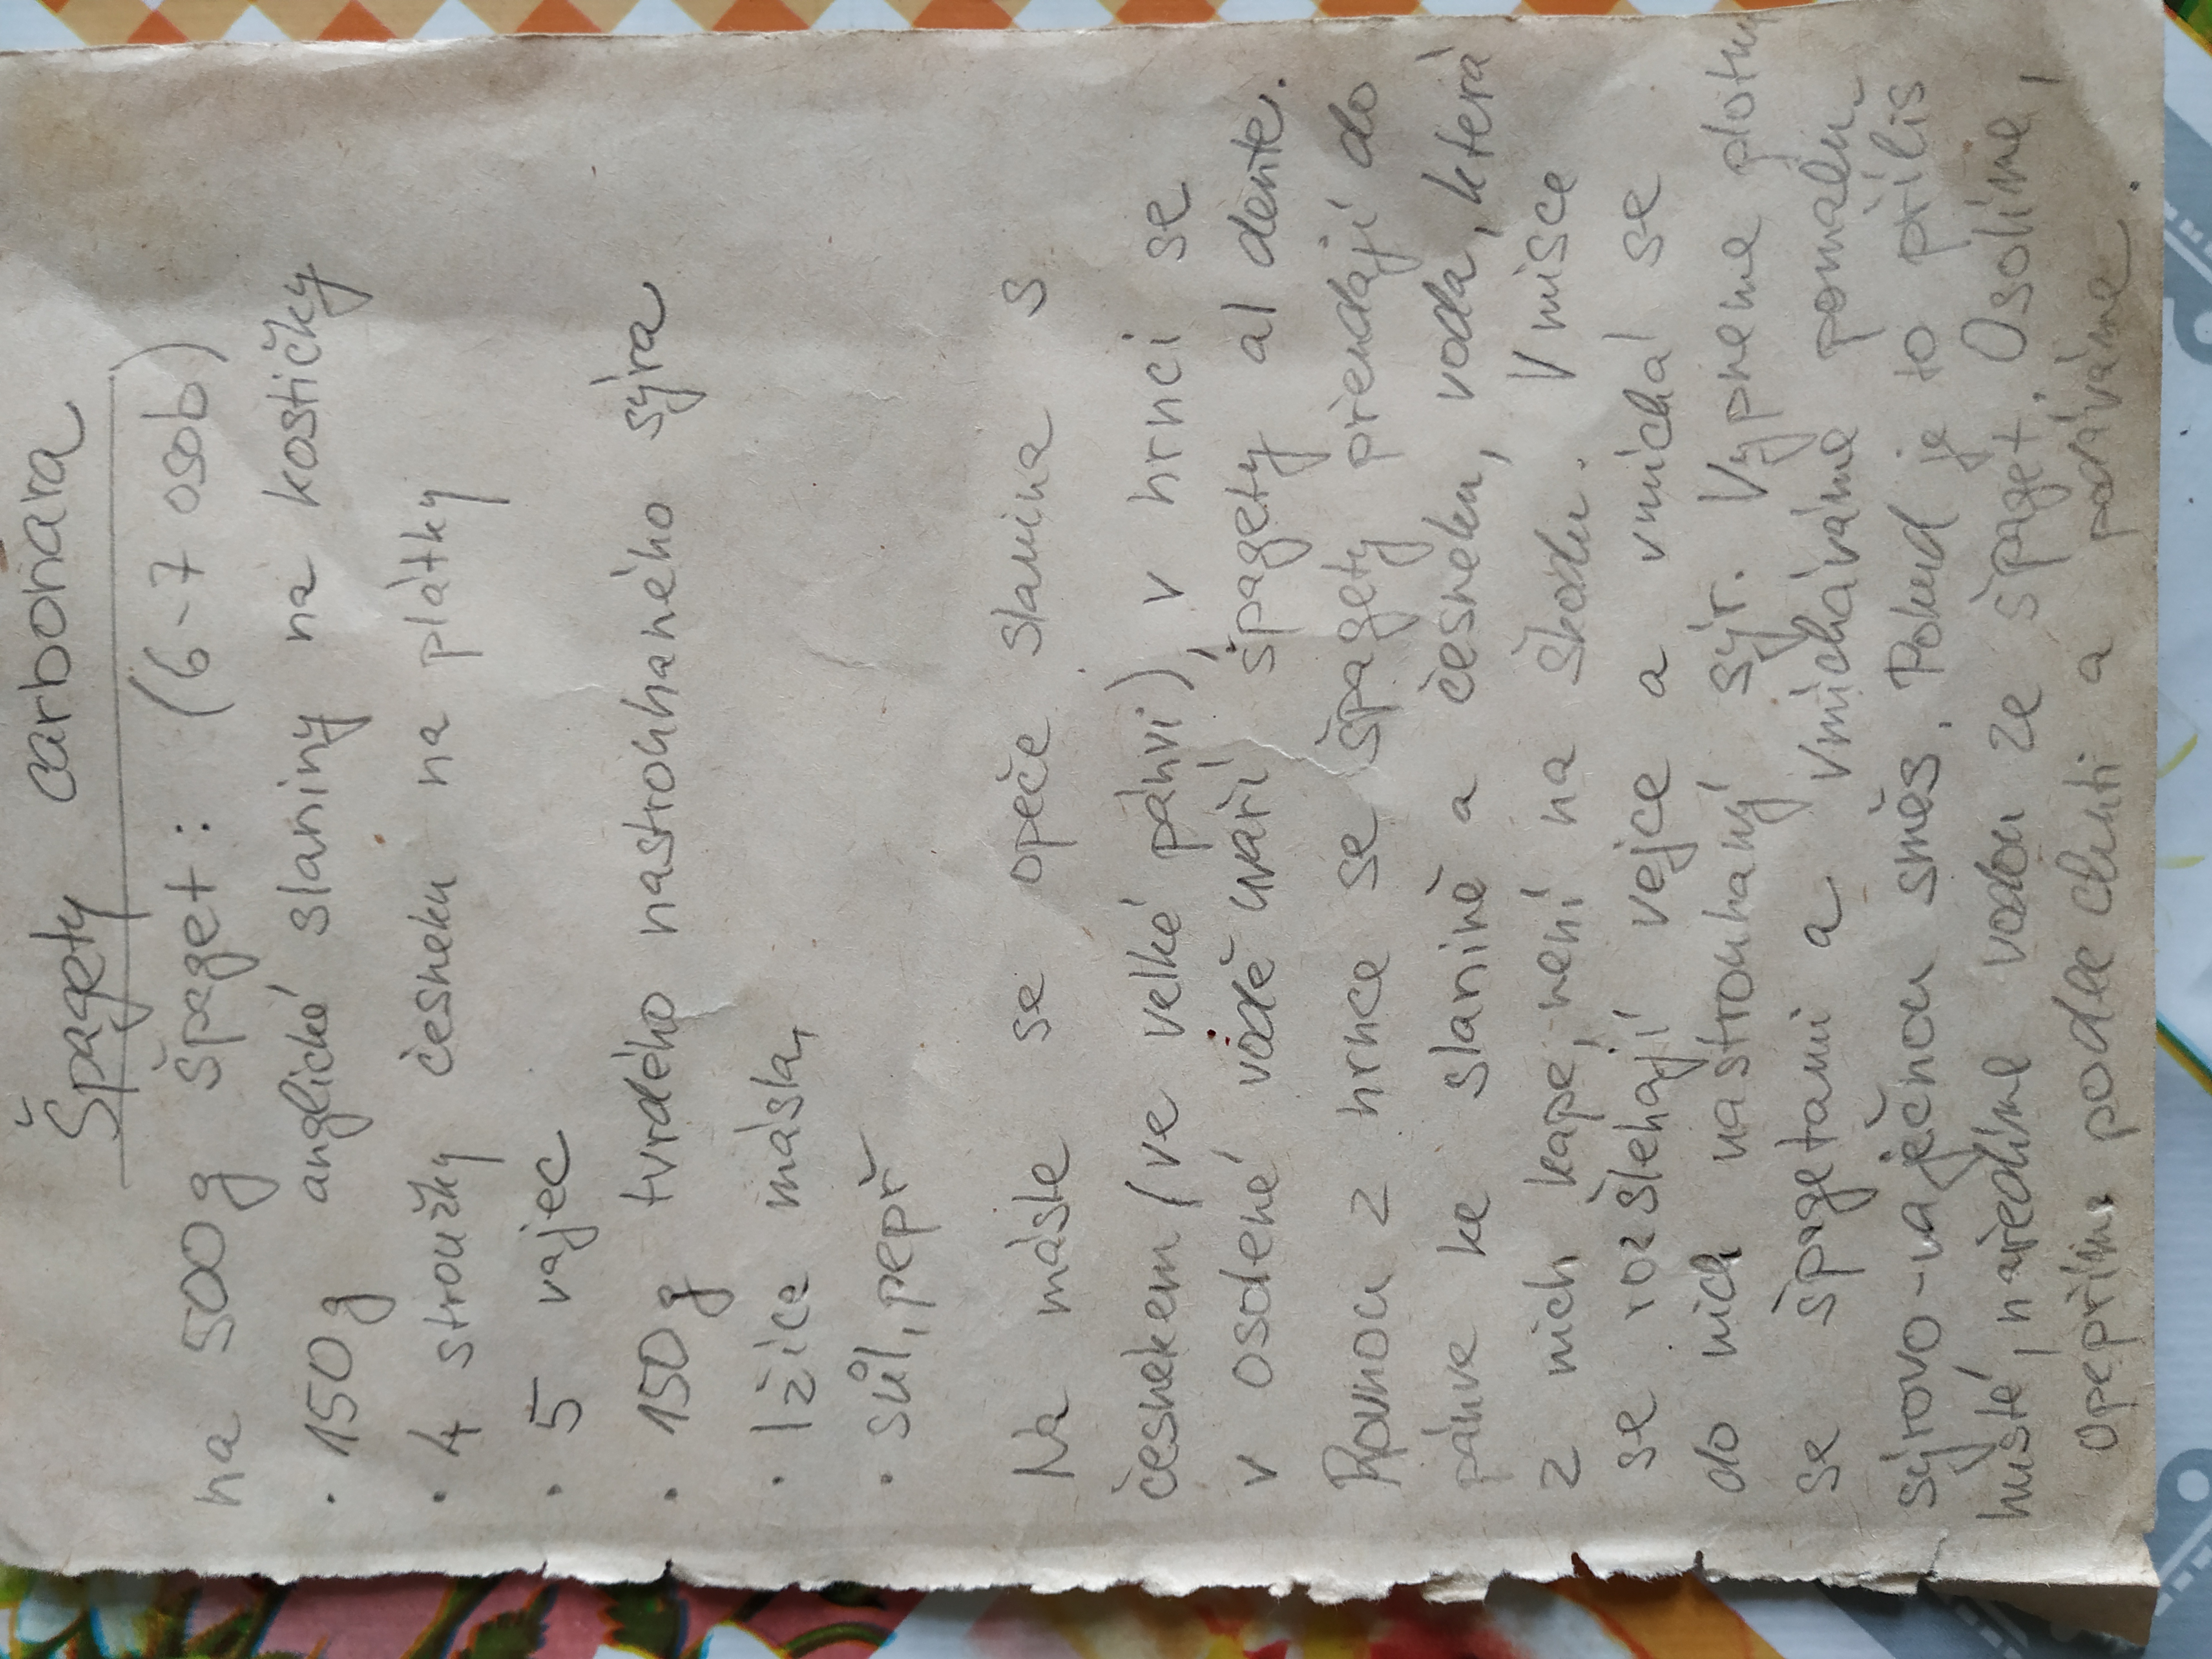 Špagety carbonara
na 500g špaget: (6-7 osob)
· 150g anglické slaniny na kostičky
· 4 stroužky česneku na plátky
· 5 vajec
· 150g tvrdého nastrouhaného sýra
· lžíce másla,
· sůl, pepř
Na másle se opeče slanina s
česnekem (ve velké pánvi), v hrnci se
v osolené vodě uvaří špagety al dente.
Rovnou z hrnce se špagety přendají do
pánve ke slanině a česneku, voda, která
z nich kape, není na škodu. V misce
se rozšlehají vejce a vmíchá se
do nich nastrouhaný sýr. Vypneme plotnu
se špagetami a vmícháváme pomalu
sýrovo-vaječnou směs. Pokud je to příliš
husté, naředíme vodou ze špaget. Osolíme,
opepříme podle chuti a podáváme.